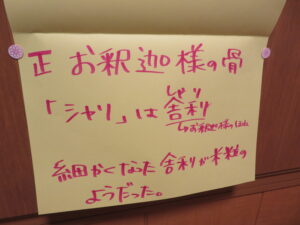 正 お釈迦様の骨
「シャリ」は舎利
しゃり
↳お釈迦様のほね
細かくなった舎利が米粒の
ようだった。